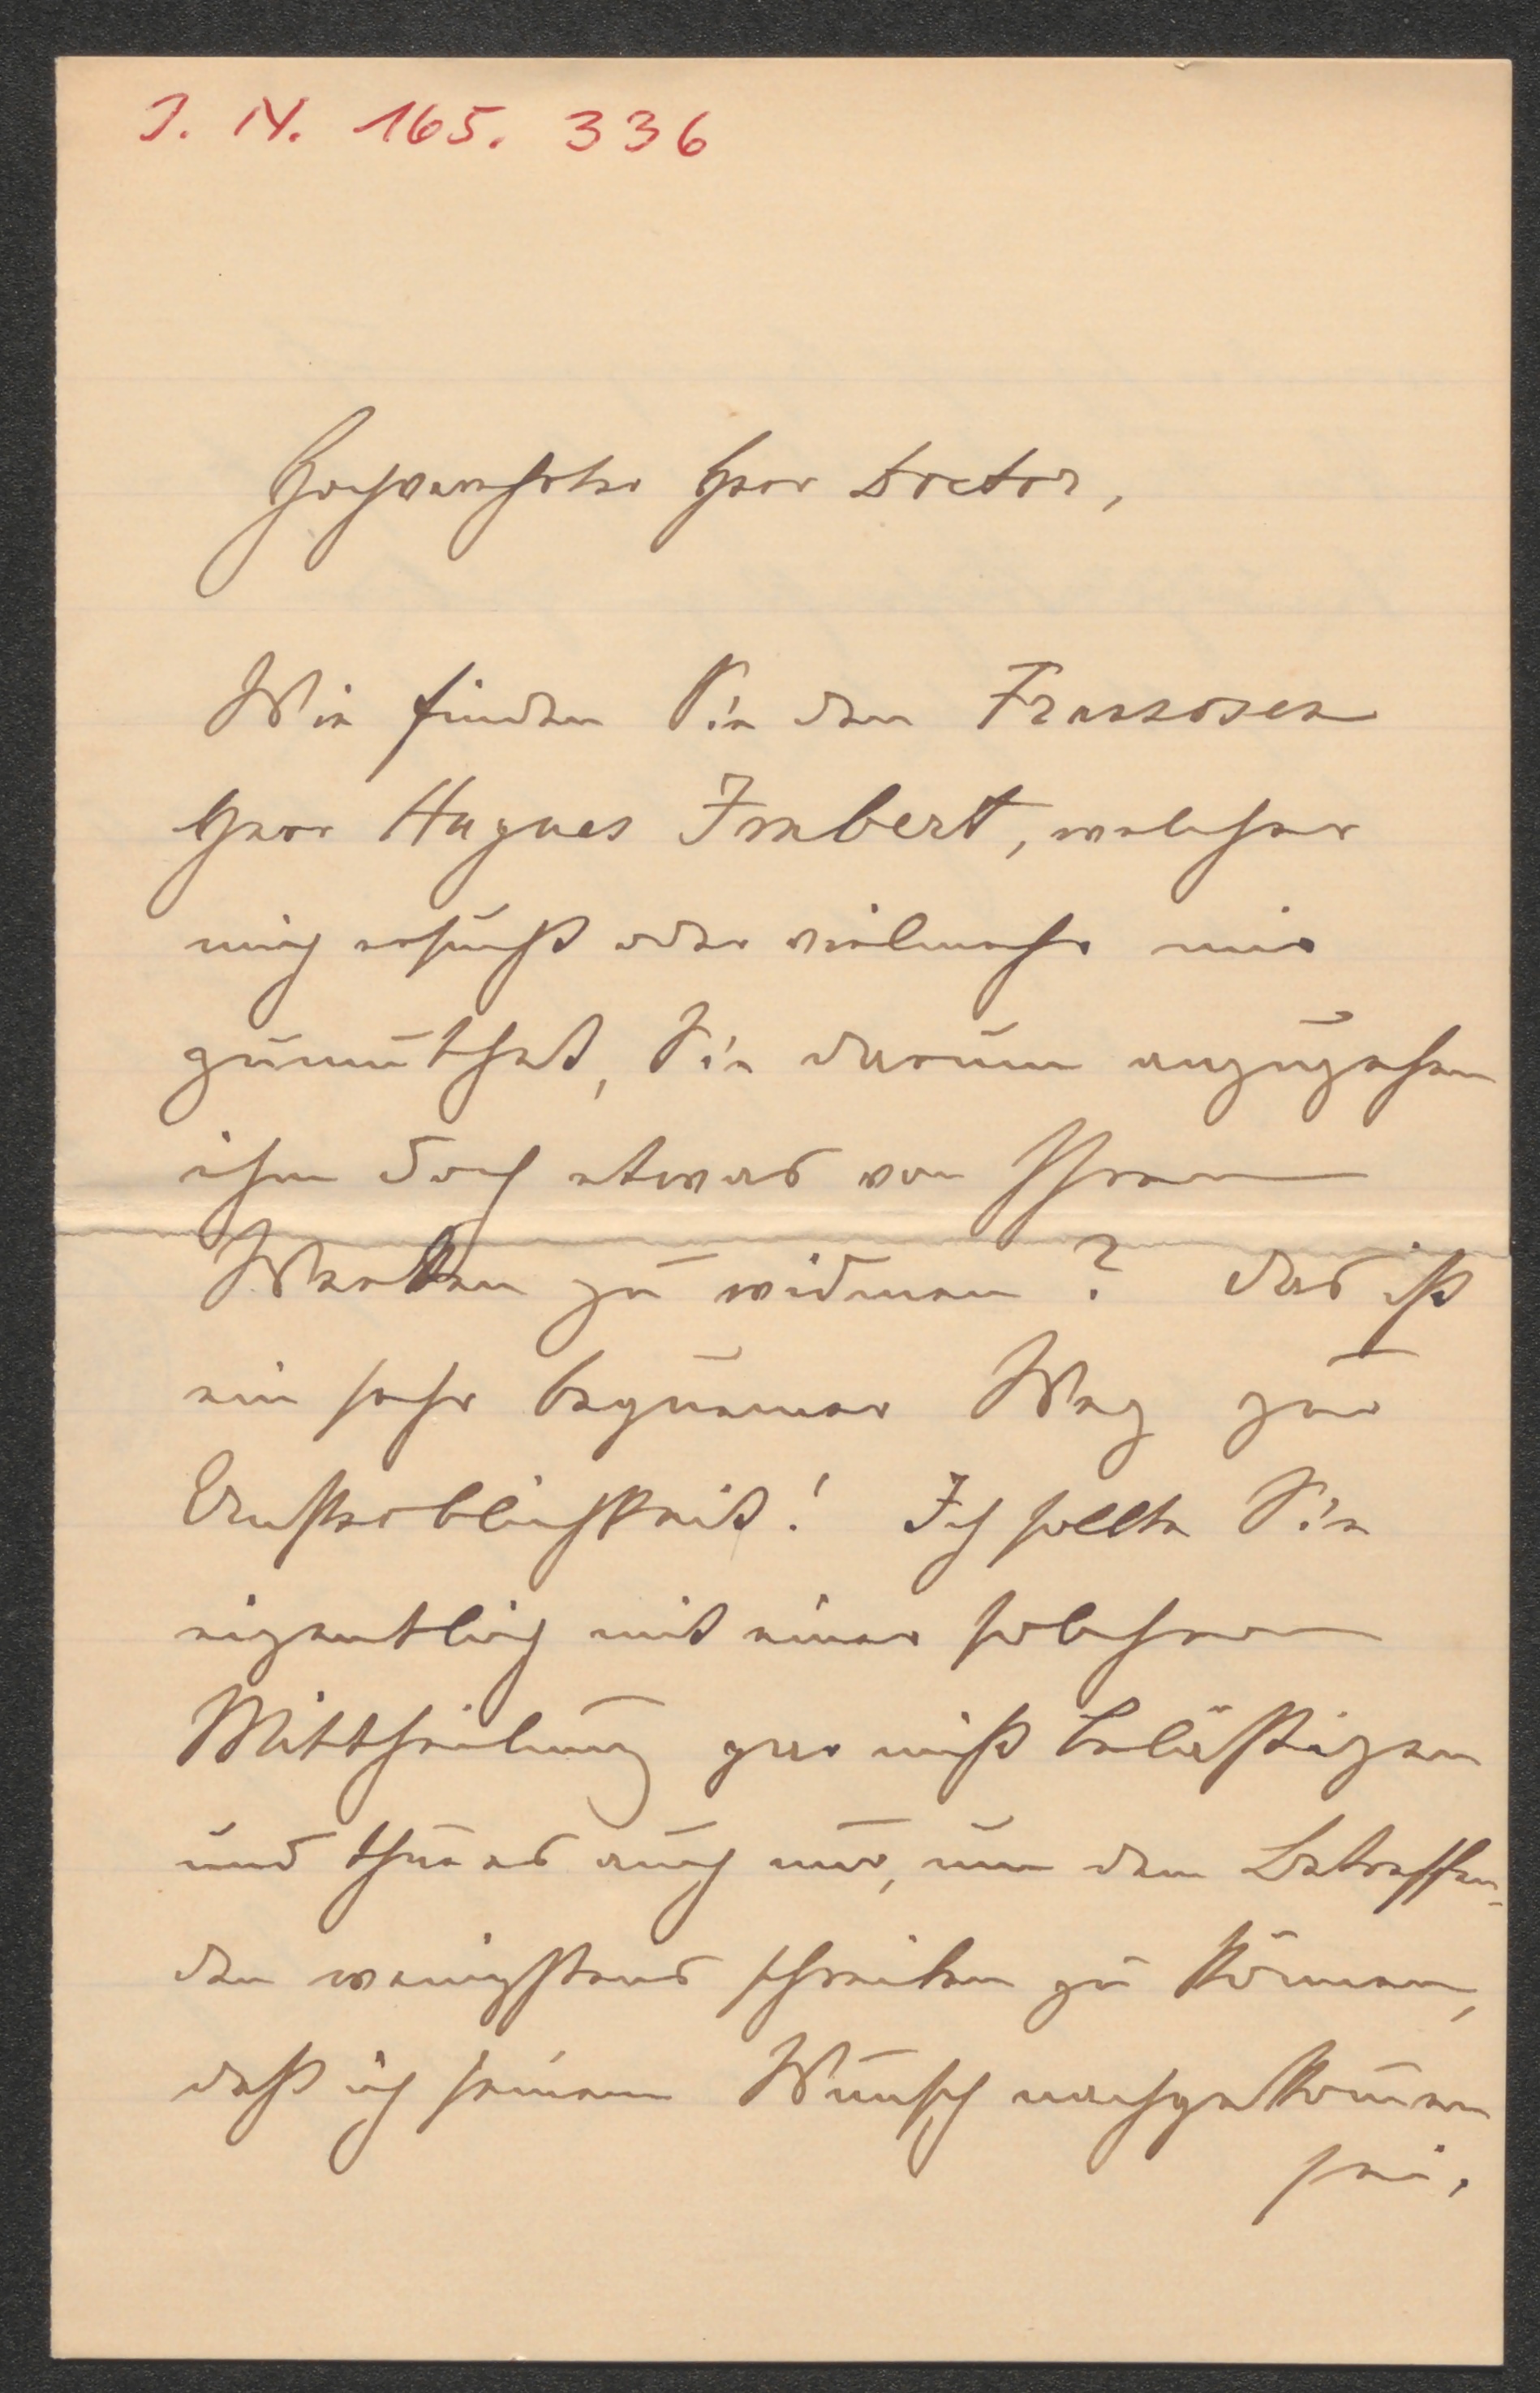 J. N. 165.336
Hochverehrter Herr Doctor,
Wie finden Sie den Franzosen
Herr Hugues Imbert, welcher
mich ersucht oder vielmehr mir
zumuthet, Sie darum anzugehen
ihm doch etwas von Ihren
Werken zu widmen? Das ist
ein sehr bequemer Weg zur
Unsterblichkeit! Ich sollte Sie
eigentlich mit einer solchen
Mittheilung gar nicht belästigen
und thue es auch nur, um dem Betreffen-
den wenigstens schreiben zu können,
daß ich seinem Wunsch nachgekom̄en
sei.